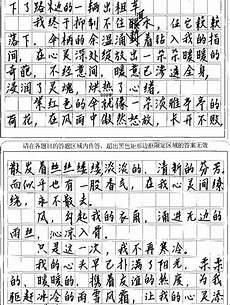 下了路过的一辆出租车。
我终于抑制不住眼水，任它簌簌
落下。伞柄的余温涌着钻入我的指
间，在心灵深处绽放出一朵朵暖暖的
奇葩，不经意间，暖意已渗透全身，
浸润了灵魂，烘热了心绪。
紫红色的伞就像一朵淡雅亭亭的
荷花，在风雨中傲然怒放，长开不败，
请在各题目的答题区域内作答，超出黑色矩形边框限定区域的答案无效
散发着丝丝缕缕淡淡的、清新的芬芳，
而似乎也有一股香气，在我心灵间缭
绕，永不散去。
风，勾起我的衣角，涌进无边的
雨丝，沁深入骨。
只是这一次，我不再寒冷。
我的心头早已扫满了阳光，柔柔
的、暖暖的，携着友谊的热度，为我
抵御起冰冷的雨雪风霜，让我的心溪